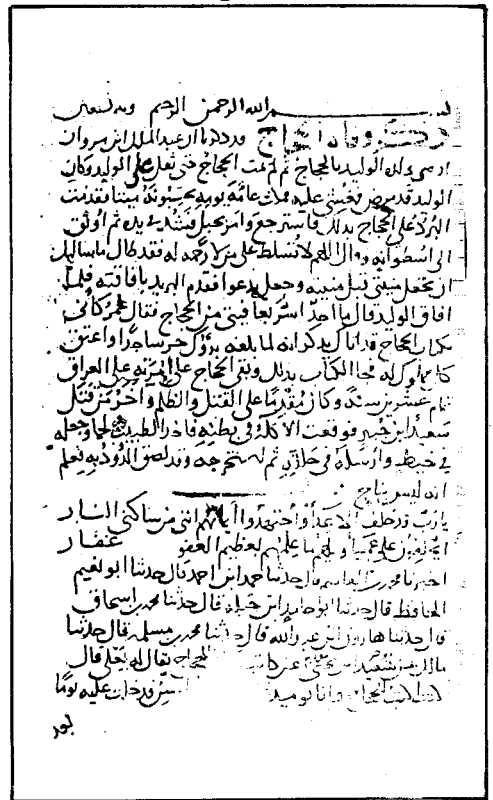 بسم الله الرحمن الرحيم وبه نستعين
ذكر وفاة الحجاج قد ذكرنا ان عبد الملك ابن مروان
اوصى ولده الوليد بالحجاج ثم لم يمت الحجاج حتى ثقل على الوليد وكان
الوليد قد مرض فغشي عليه فمكث عامة يومه يحسبونه ميتا فقدمت
البرد على الحجاج بذلك فاسترجع وامر بحبل فشد في يده ثم اوثق
الى اسطوانه وقال اللهم لا تسلط على من لا رحمه له فقد طال ما سالتك
ان تجعل منيتي قبل منيته وجعل يدعوا فقدم البريد بافاقته فلما
افاق الوليد قال ما احد اشد بعافيتي من الحجاج فقال عمر كاني
بكتاب الحجاج قد اتاك يذكر انه لما بلغه برؤك خر ساجدا واعتق
كل مملوك له فجا الكتاب بذلك وبقي الحجاج على امرته على العراق
تمام عشرين سنة وكان مقدما على القتل والظلم واخر من قتل
سعيد ابن جبير فوقعت الاكلة في بطنه فاخذ الطبيب لحما وجعله
في خيط وارسله في حلقه ثم استخرجه وقد لصق الدود به فعلم
انه ليس بناج
يا رب قد حلف الاعداء واجتهدوا ايمانهم انني من ساكني النار
ايحلفون على عمياء ويحهم ما علمهم بعظيم العفو غفار
اخبرنا محمد قال حدثنا حمد ابن احمد قال حدثنا ابو نعيم
الحافظ قال حدثنا ابو حامد ابن جبله قال حدثنا محمد بن اسحاق
قال حدثنا هارون ابن عبد الله قال حدثنا محمد بن مسلمة قال حدثنا
مالك بن سعيد الحجاج يقال له يعلى قال
كنت اكتب للحجاج وانا يوميذ فدخلت عليه يوما
بعد